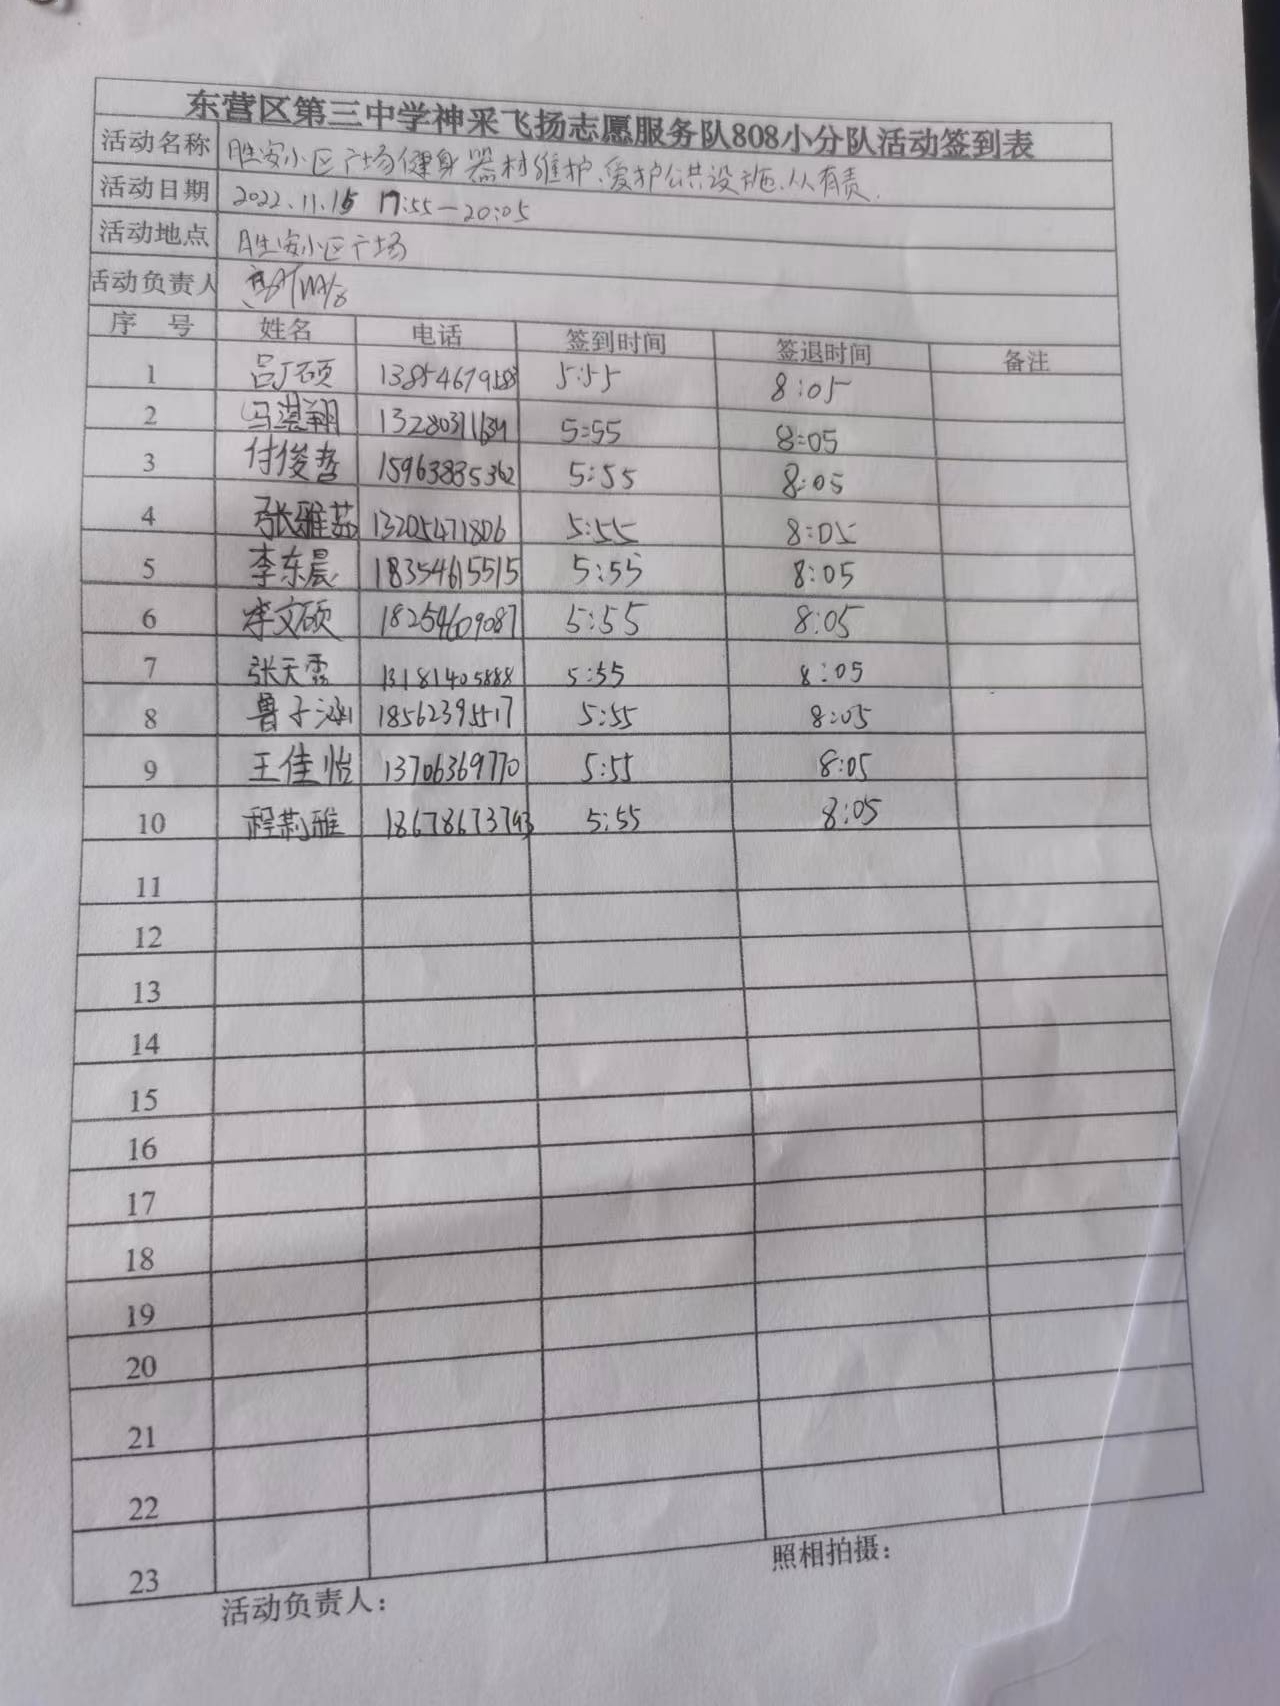 东营区第三中学神采飞扬志愿服务队808小分队活动签到表
活动名称 胜安小区广场健身器材维护、爱护公共设施、人人有责.
活动日期 2022.11.15 17:55—20:05
活动地点 胜安小区广场
活动负责人
序 号 姓名 电话 签到时间 签退时间 备注
1 吕广硕 5:55 8:05
2 冯淇翔 5:55 8:05
3 付俊哲 15963835362 5:55 8:05
4 张雅茹 13205471806 5:55 8:05
5 李东晨 18354615515 5:55 8:05
6 李文硕 18254609087 5:55 8:05
7 张天霖 13181405888 5:55 8:05
8 鲁子涵 18562395517 5:55 8:05
9 王佳怡 13706369770 5:55 8:05
10 程莉雅 18678673793 5:55 8:05
11
12
13
14
15
16
17
18
19
20
21
22
23
活动负责人： 照相拍摄：